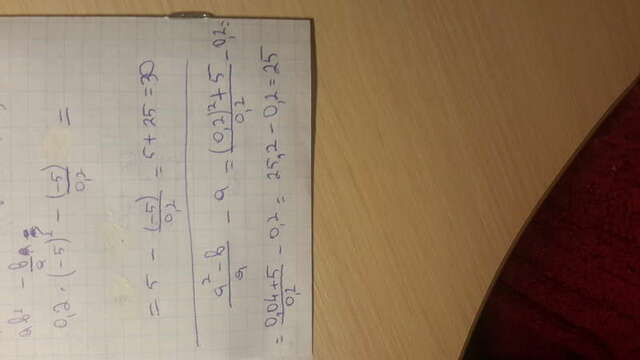 ab² - b/a
0,2 · (-5)² - (-5)/0,2 =
= 5 - (-5)/0,2 = 5 + 25 = 30
(a² - b)/a - a = ((0,2)² + 5)/0,2 - 0,2 =
= (0,04 + 5)/0,2 - 0,2 = 25,2 - 0,2 = 25